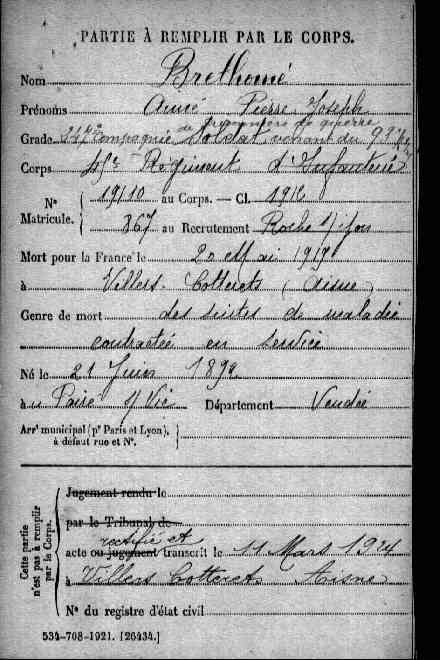 PARTIE À REMPLIR PAR LE CORPS.
Nom Brethomé
Prénoms Aimé Pierre Joseph
de prisonniers de guerre
Grade 347e Compagnie Soldat venant du 93e
Corps Régiment d'Infanterie
N° Matricule. 19110 au Corps. — Cl. 1912
367 au Recrutement Roche s/Yon
Mort pour la France le 20 Mai 1919
à Villers-Cotterets (Aisne)
Genre de mort des suites de maladie
contractée en service
Né le 21 Juin 1892
à u Poiré s/Vie Département Vendée
Arrt municipal (pr Paris et Lyon),
à défaut rue et N°.
Cette partie n'est pas à remplir par le Corps.
Jugement rendu le
par le Tribunal de
rectifié et
acte ou jugement transcrit le 11 Mars 1924
à Villers Cotterets Aisne
N° du registre d'état civil
534-708-1921. [26434.]